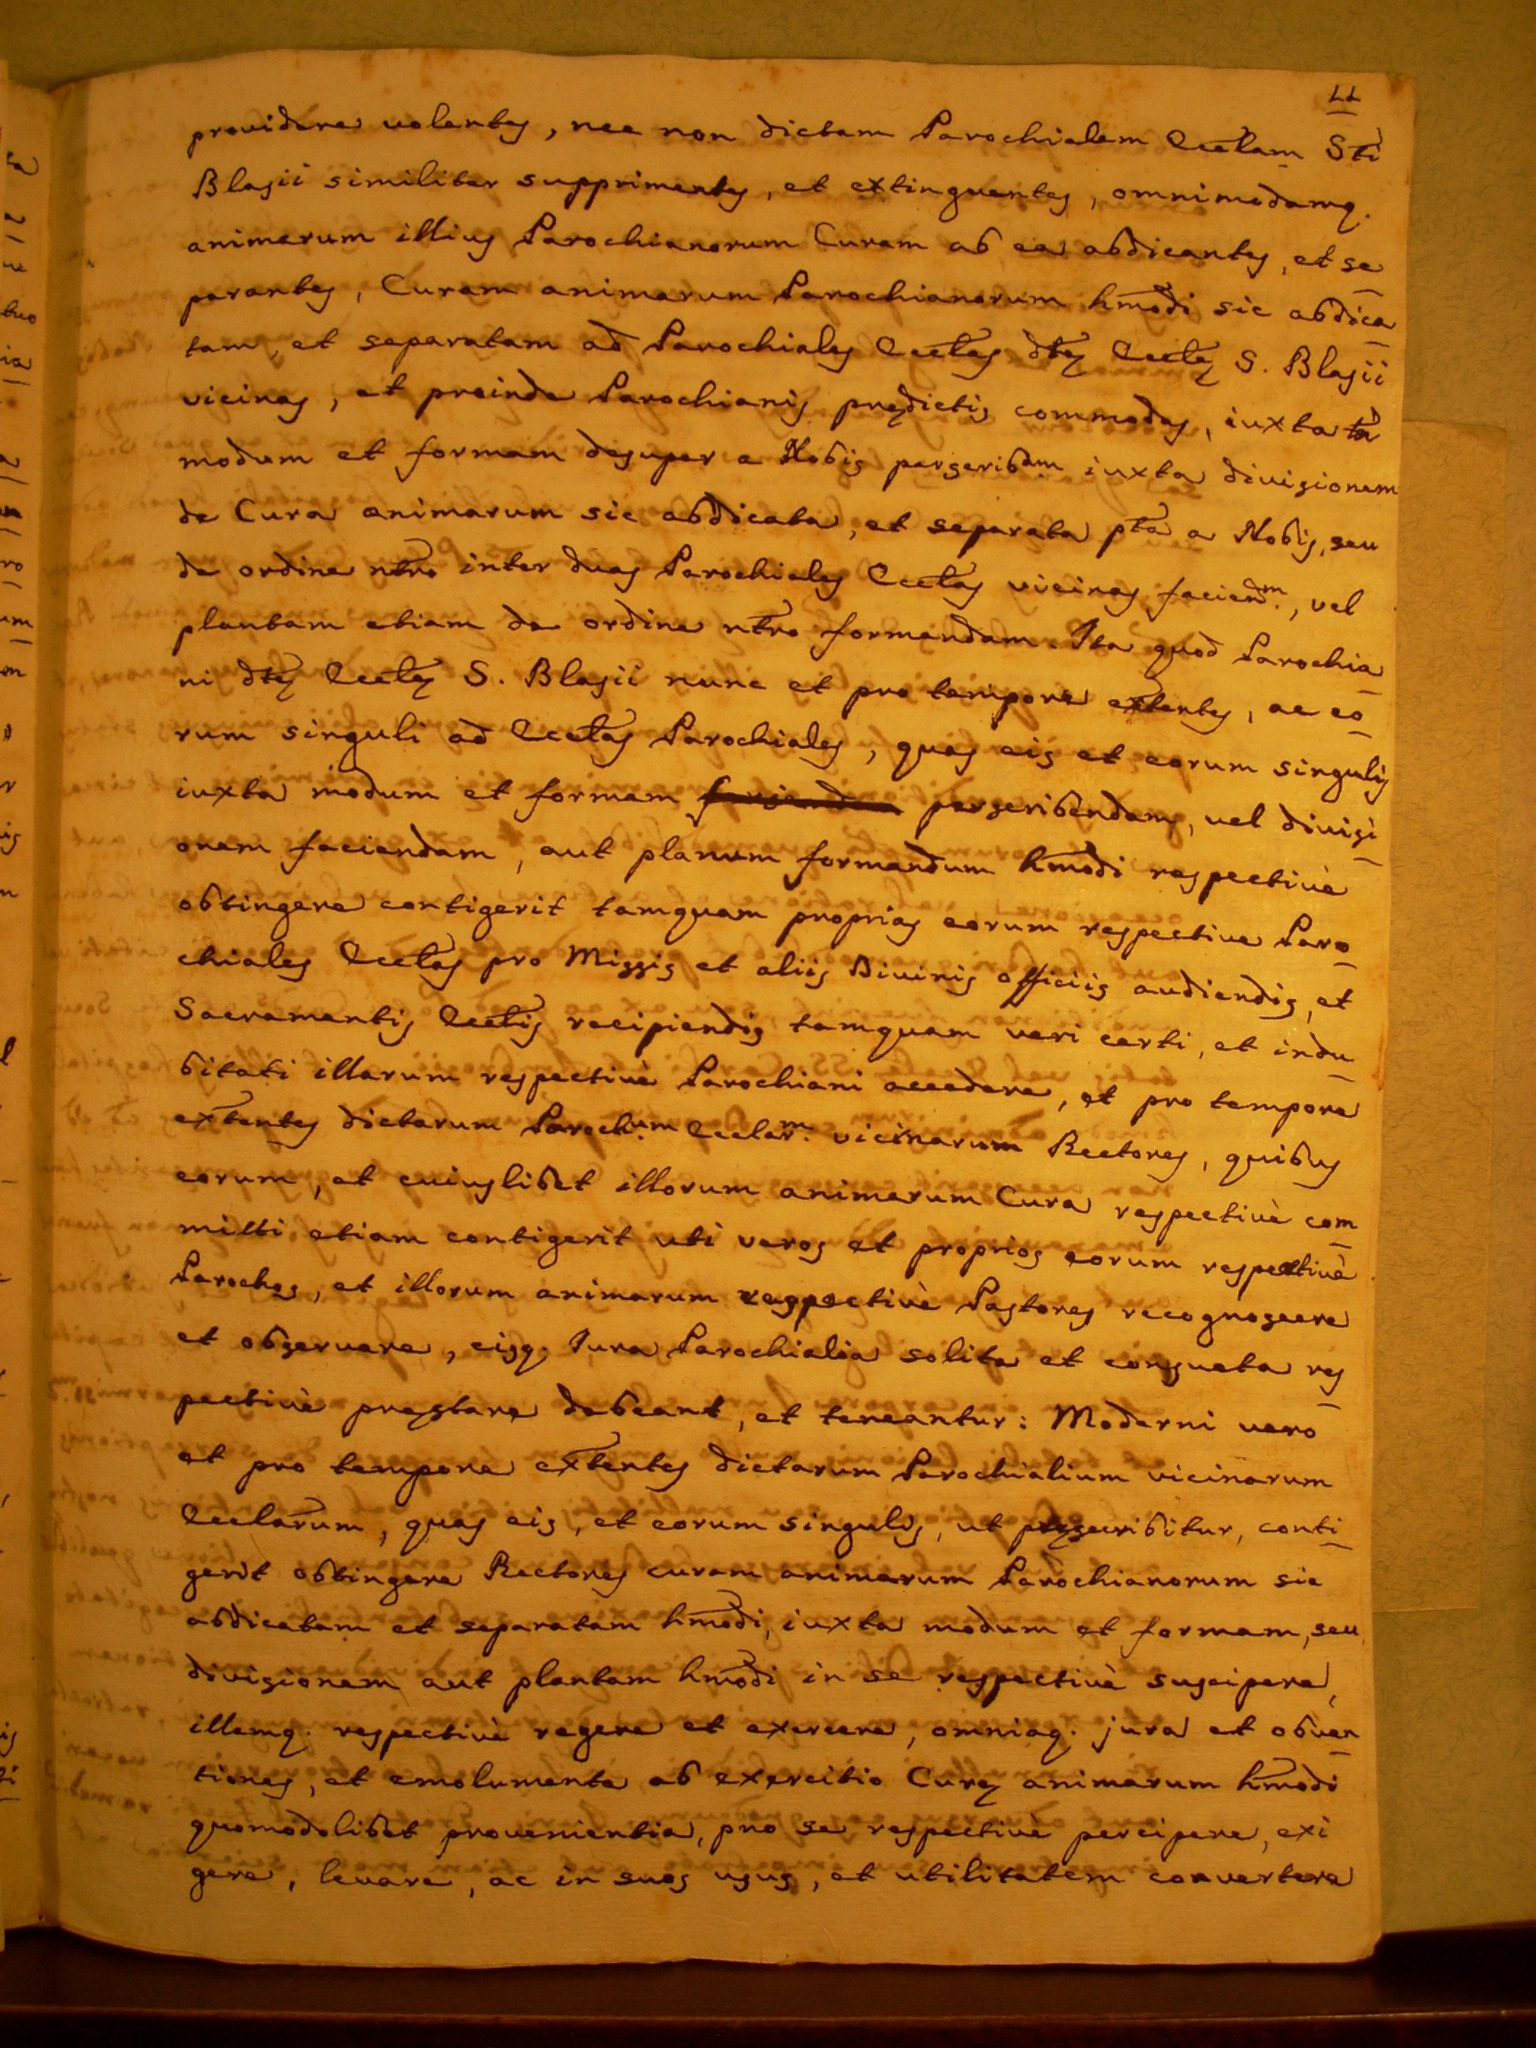 11
providere volentes, nec non dictam Parochialem Eccl̃am Sti
Blasii similiter supprimentes, et extinguentes, omnimodamq.
animarum illius Parochianorum Curam ab ea abdicantes, et se
parantes, Curam animarum Parochianorum hm̃odi sic abdica
tam, et separatam ad Parochiales Eccl̃as dt̃ę Eccl̃ę S. Blasii
vicinas, et proinde Parochianis prędictis commodas, iuxta
modum et formam desuper a Nobis perscribdam iuxta divisionem
de Cura animarum sic abdicata, et separata pt̃a a Nobis, seu
de ordine nt̃ro inter duas Parochiales Eccl̃as vicinas faciendm., vel
plantam etiam de ordine nt̃ro formandam. Ita quod Parochia
ni dt̃ę Eccl̃ę S. Blasii nunc et pro tempore ext̃entes, ac eo
rum singuli ad Eccl̃as Parochiales, quas eis et eorum singulis
iuxta modum et formam perscribendam, vel divisi
onem faciendam, aut planum formandum hm̃odi respectivè
obtingere contigerit tamquam proprias eorum respective Paro
chiales Eccl̃as pro Missis et aliis Divinis officiis audiendis, et
Sacramentis Eccl̃is recipiendis tamquam veri certi, et indu
bitati illarum respectivè Parochiani accedere, et pro tempore
ext̃entes dictarum Paroch.um Ecclar.m vicinarum Rectores, quibus
eorum, et cuiuslibet illorum animarum Cura respectivè com
mitti etiam contigerit uti veros et proprios eorum respectivè
Parochos, et illorum animarum respectivè Pastores recognoscere
et observare, eisq. Iura Parochialia solita et consueta res
pectivè pręstare debeant, et teneantur: Moderni vero
et pro tempore ext̃entes dictarum Parochialium vicinarum
Ecclarum, quas eis, et eorum singulis, ut pręscribitur, conti
gerit obtingere Rectores curam animarum Parochianorum sic
abdicatam et separatam hm̃odi, iuxta modum et formam, seu
divisionem aut plantam hm̃odi in se respectivè suscipere,
illamq. respectivè regere et exercere, omniaq. jura et obven
tiones, et emolumenta ab exercitio Curę animarum hm̃odi
quomodolibet provenientia, pro se respectivè percipere, exi
gere, levare, ac in suos usus, et utilitatem convertere